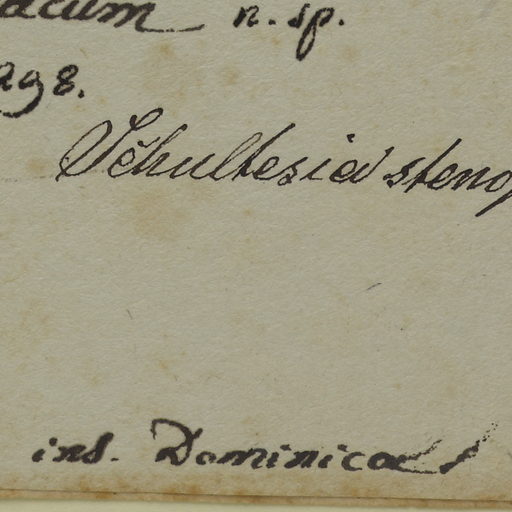 acum n. sp.
ag 8.
Schultesia stenop
ins. Dominica